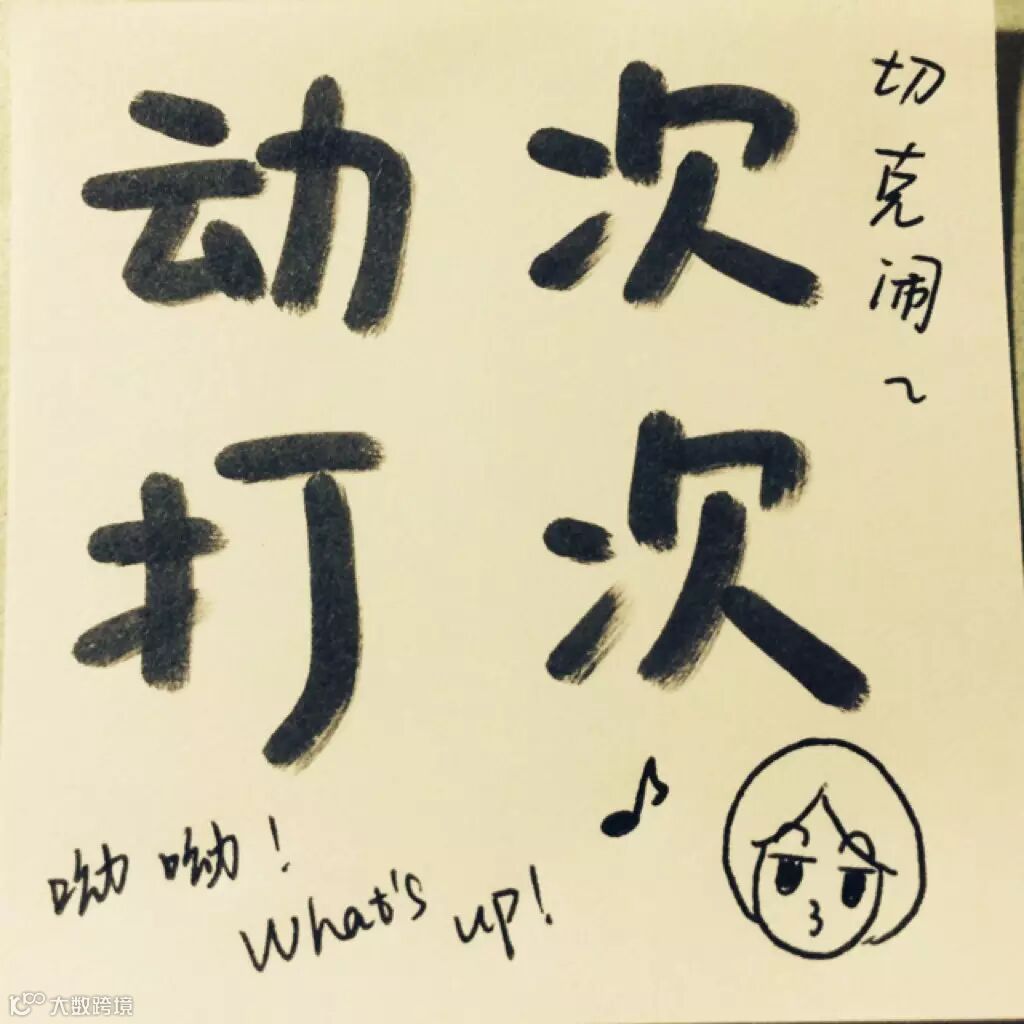 动次
打次
切克闹~
呦呦！
What's up!
大数跨境